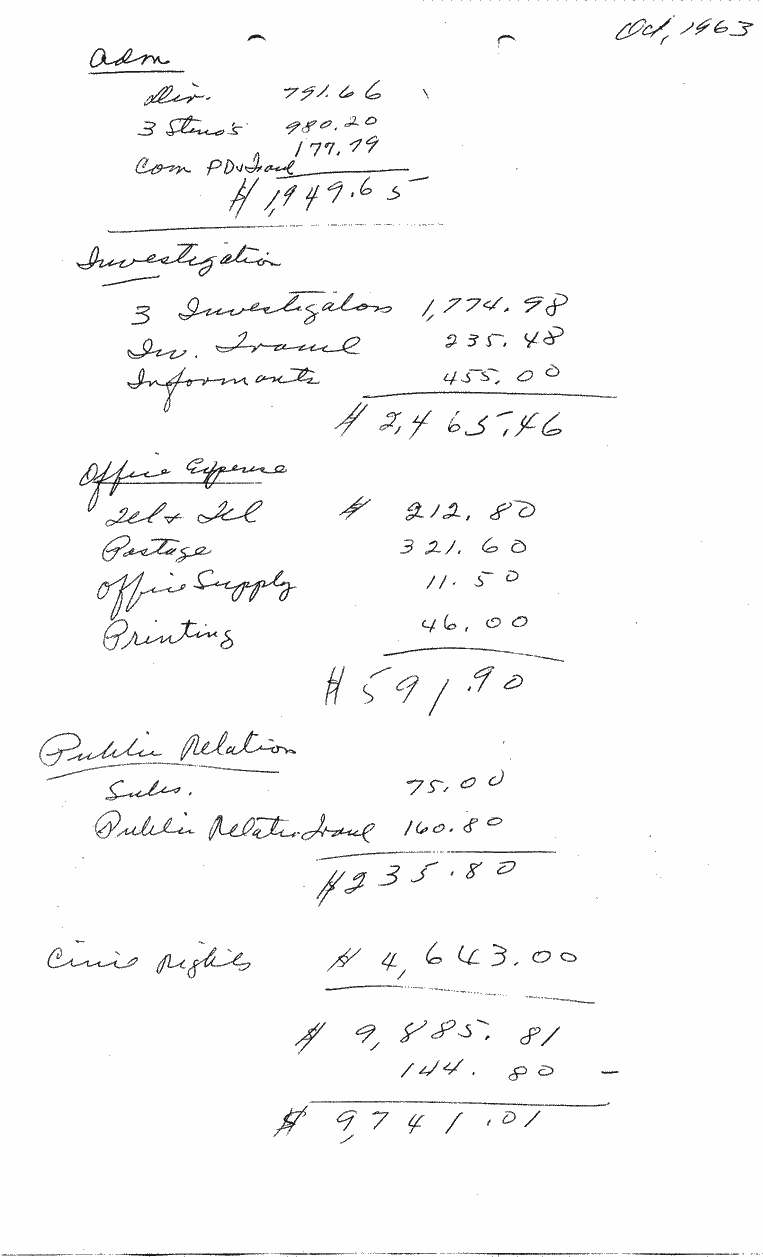 Oct, 1963
Adm
Dir. 791.66
3 Steno's 980.20
177.79
Com PD & Travel
$ 1,949.65
Investigation
3 Investigators 1,774.98
Inv. Travel 235.48
Informants 455.00
$ 2,465.46
Office Expense
Tel & Tel $ 212.80
Postage 321.60
Office Supply 11.50
Printing 46.00
$ 591.90
Public Relation
Subs. 75.00
Public Relatio Travel 160.80
$ 235.80
Civil Rights $ 4,643.00
$ 9,885.81
144.80 -
$ 9,741.01